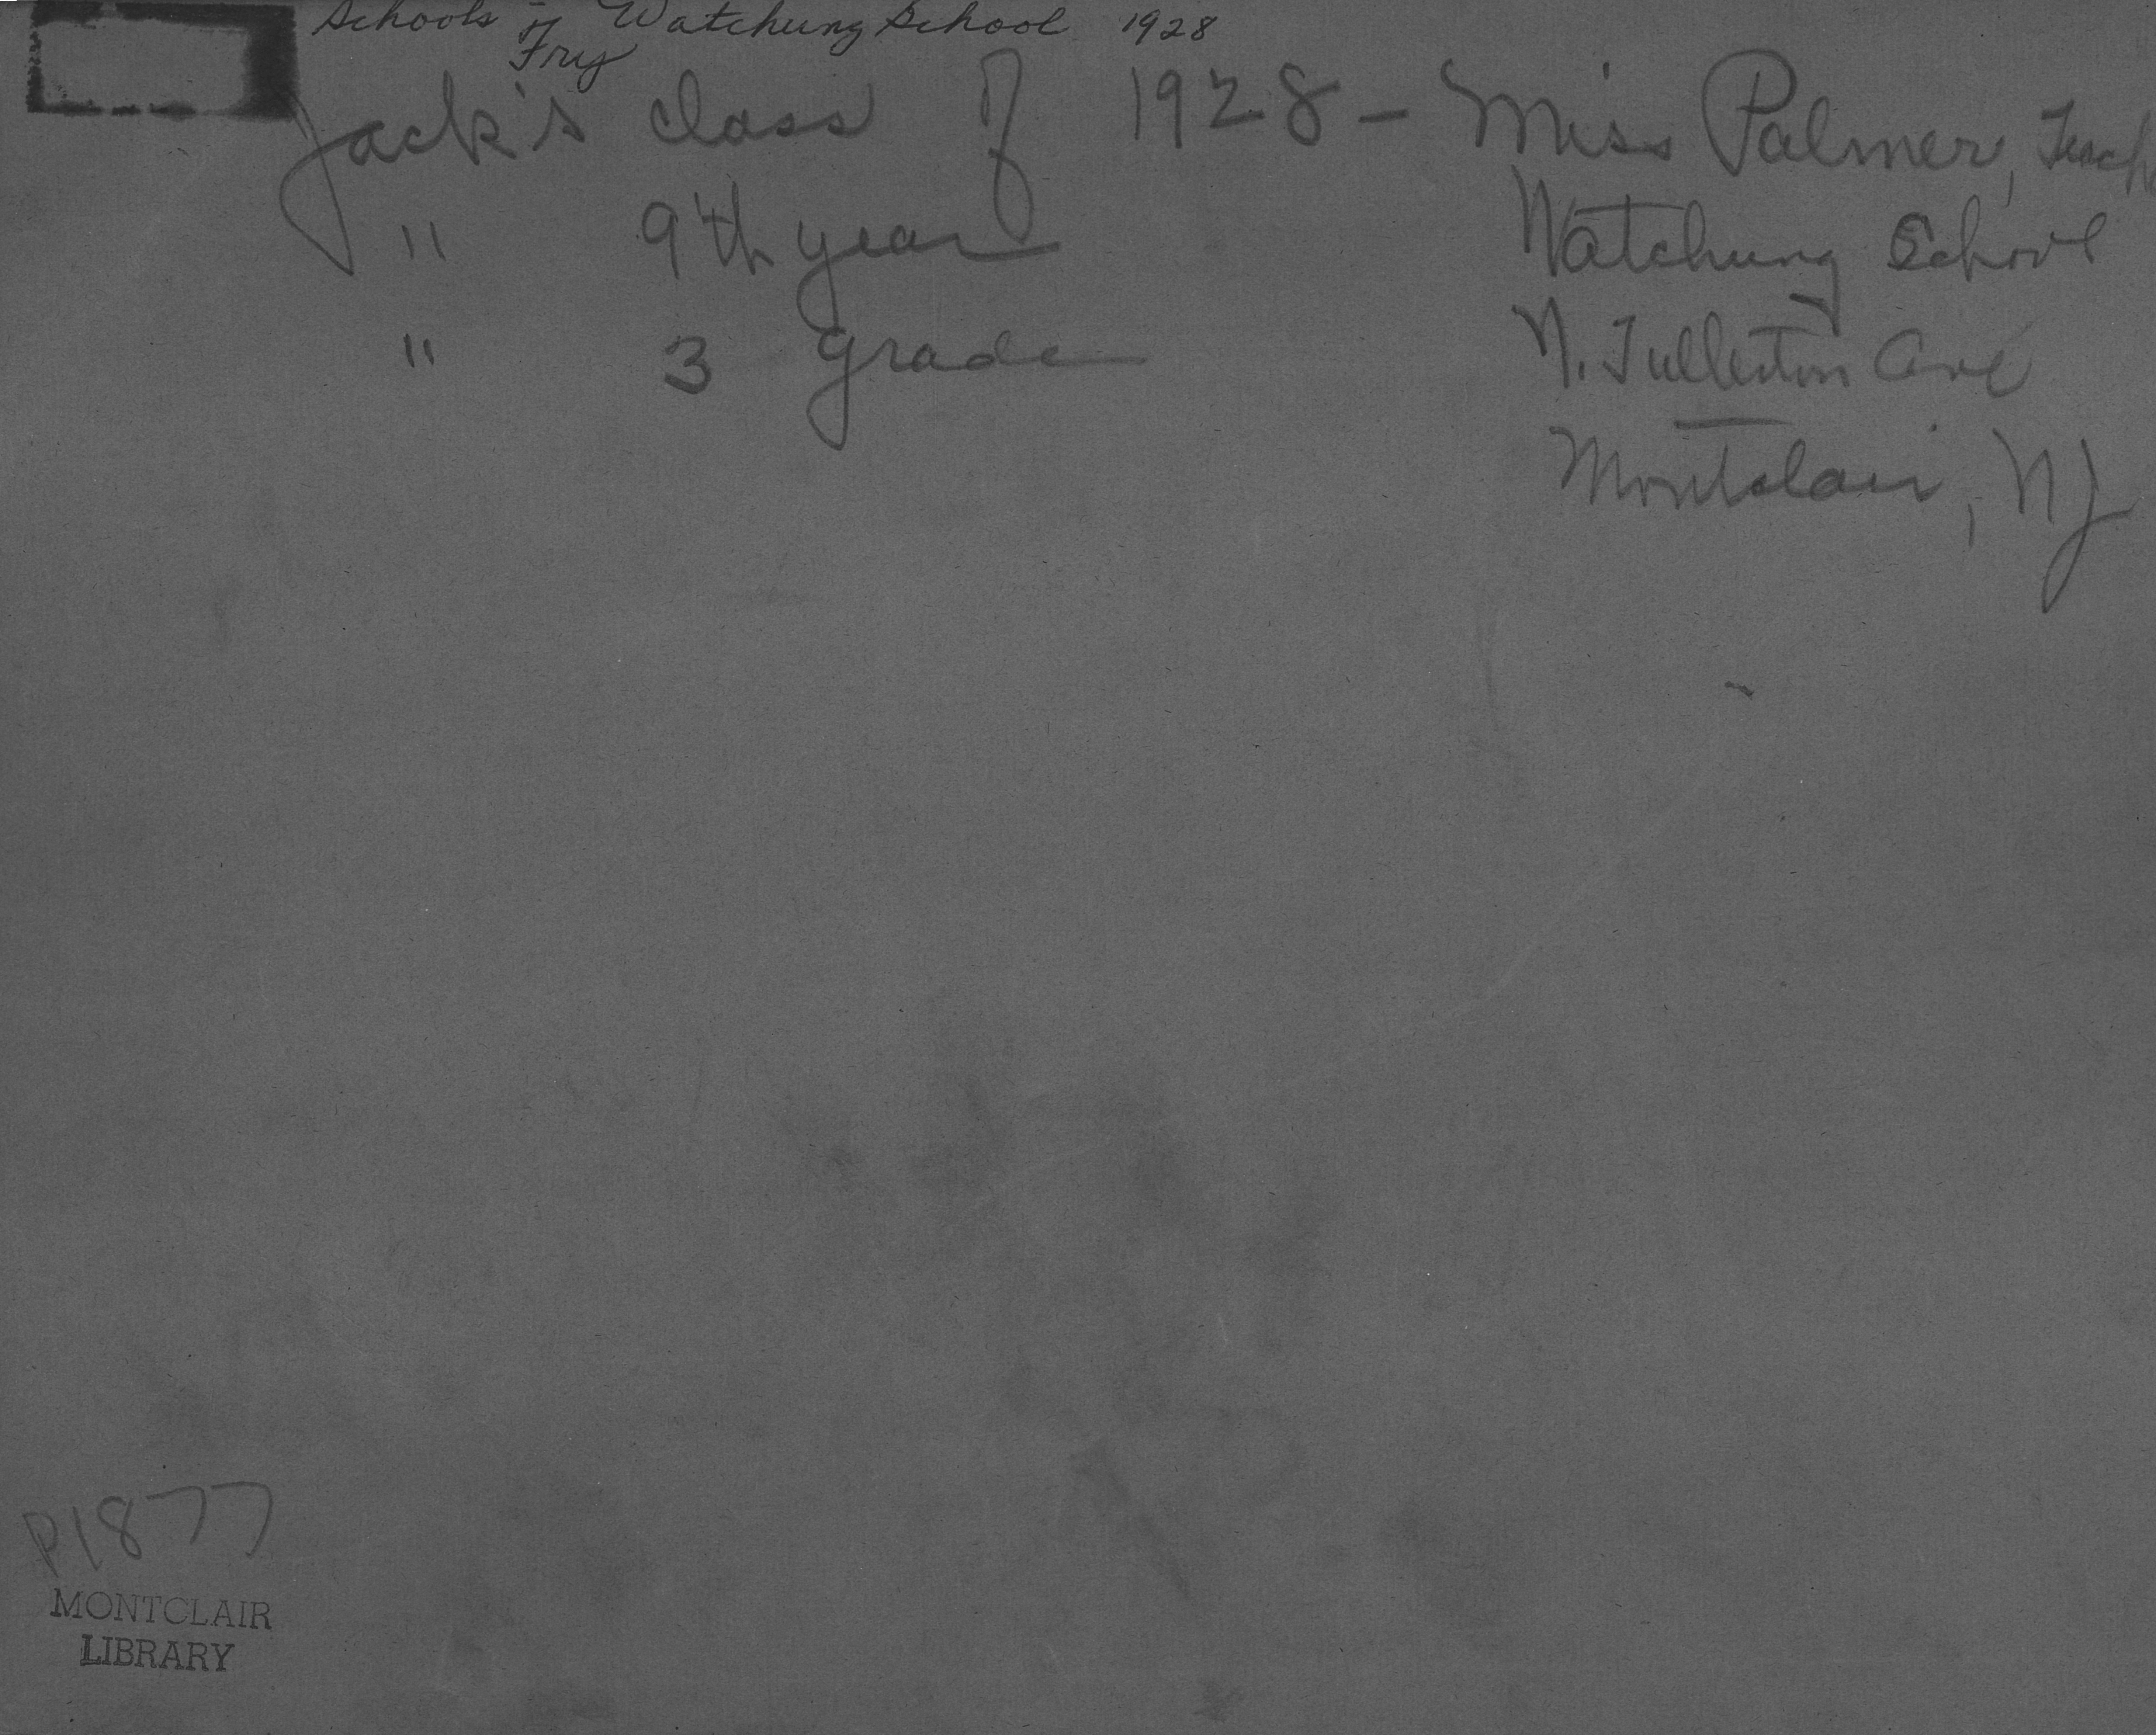 Schools - Watchung School 1928
Fry
Jack's class of 1928 - Miss Palmer, Teach
" 9th year Watchung School
" 3 grade N. Fullerton Ave
Montclair, NJ
P1877
MONTCLAIR
LIBRARY